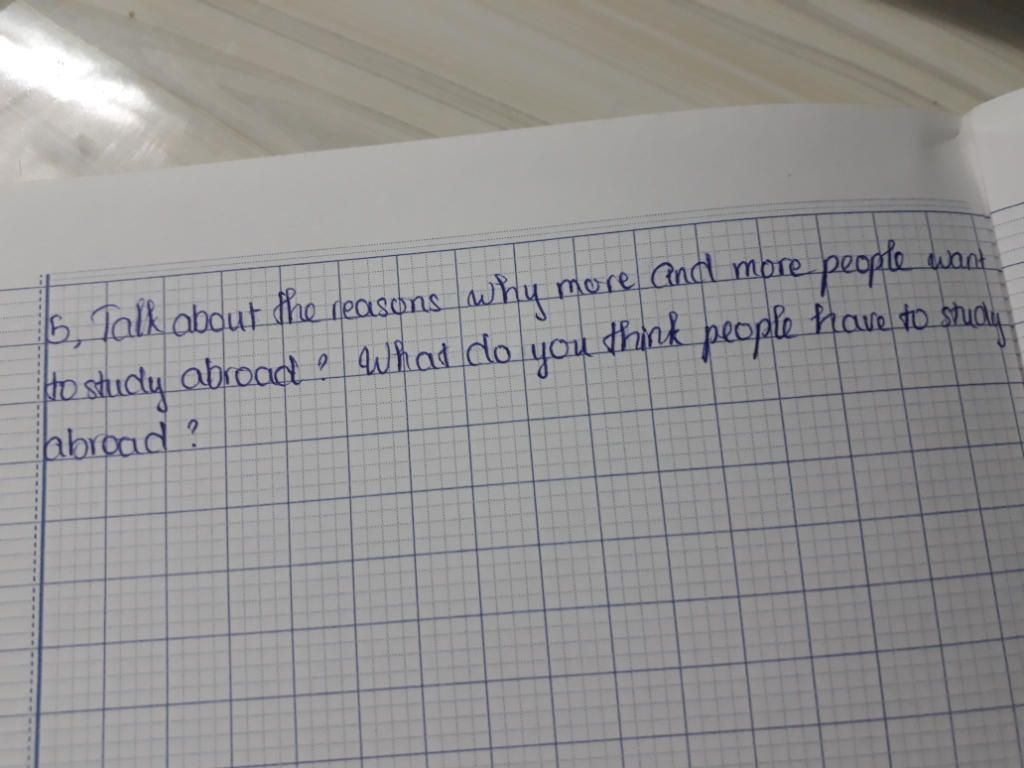 5, Talk about the reasons why more and more people want
to study abroad? What do you think people have to study
abroad?